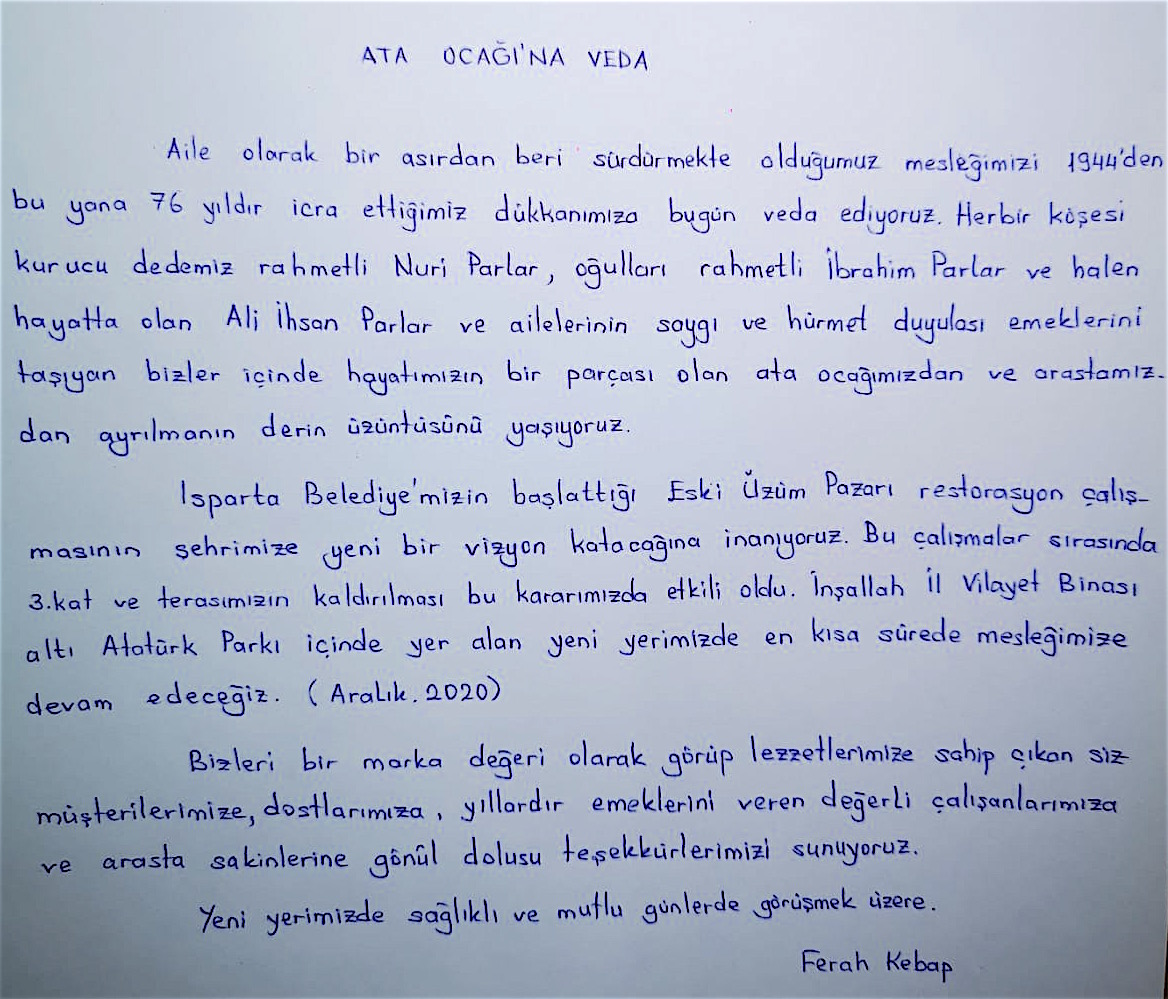 ATA OCAĞI'NA VEDA
Aile olarak bir asırdan beri sürdürmekte olduğumuz mesleğimizi 1944'den
bu yana 76 yıldır icra ettiğimiz dükkanımıza bugün veda ediyoruz. Herbir köşesi
kurucu dedemiz rahmetli Nuri Parlar, oğulları rahmetli İbrahim Parlar ve halen
hayatta olan Ali İhsan Parlar ve ailelerinin saygı ve hürmet duyulası emeklerini
taşıyan bizler içinde hayatımızın bir parçası olan ata ocağımızdan ve arastamız-
dan ayrılmanın derin üzüntüsünü yaşıyoruz.
Isparta Belediye'mizin başlattığı Eski Üzüm Pazarı restorasyon çalış-
masının şehrimize yeni bir vizyon katacağına inanıyoruz. Bu çalışmalar sırasında
3.kat ve terasımızın kaldırılması bu kararımızda etkili oldu. İnşallah İl Vilayet Binası
altı Atatürk Parkı içinde yer alan yeni yerimizde en kısa sürede mesleğimize
devam edeceğiz. (Aralık.2020)
Bizleri bir marka değeri olarak görüp lezzetlerimize sahip çıkan siz
müşterilerimize, dostlarımıza, yıllardır emeklerini veren değerli çalışanlarımıza
ve arasta sakinlerine gönül dolusu teşekkürlerimizi sunuyoruz.
Yeni yerimizde sağlıklı ve mutlu günlerde görüşmek üzere.
Ferah Kebap